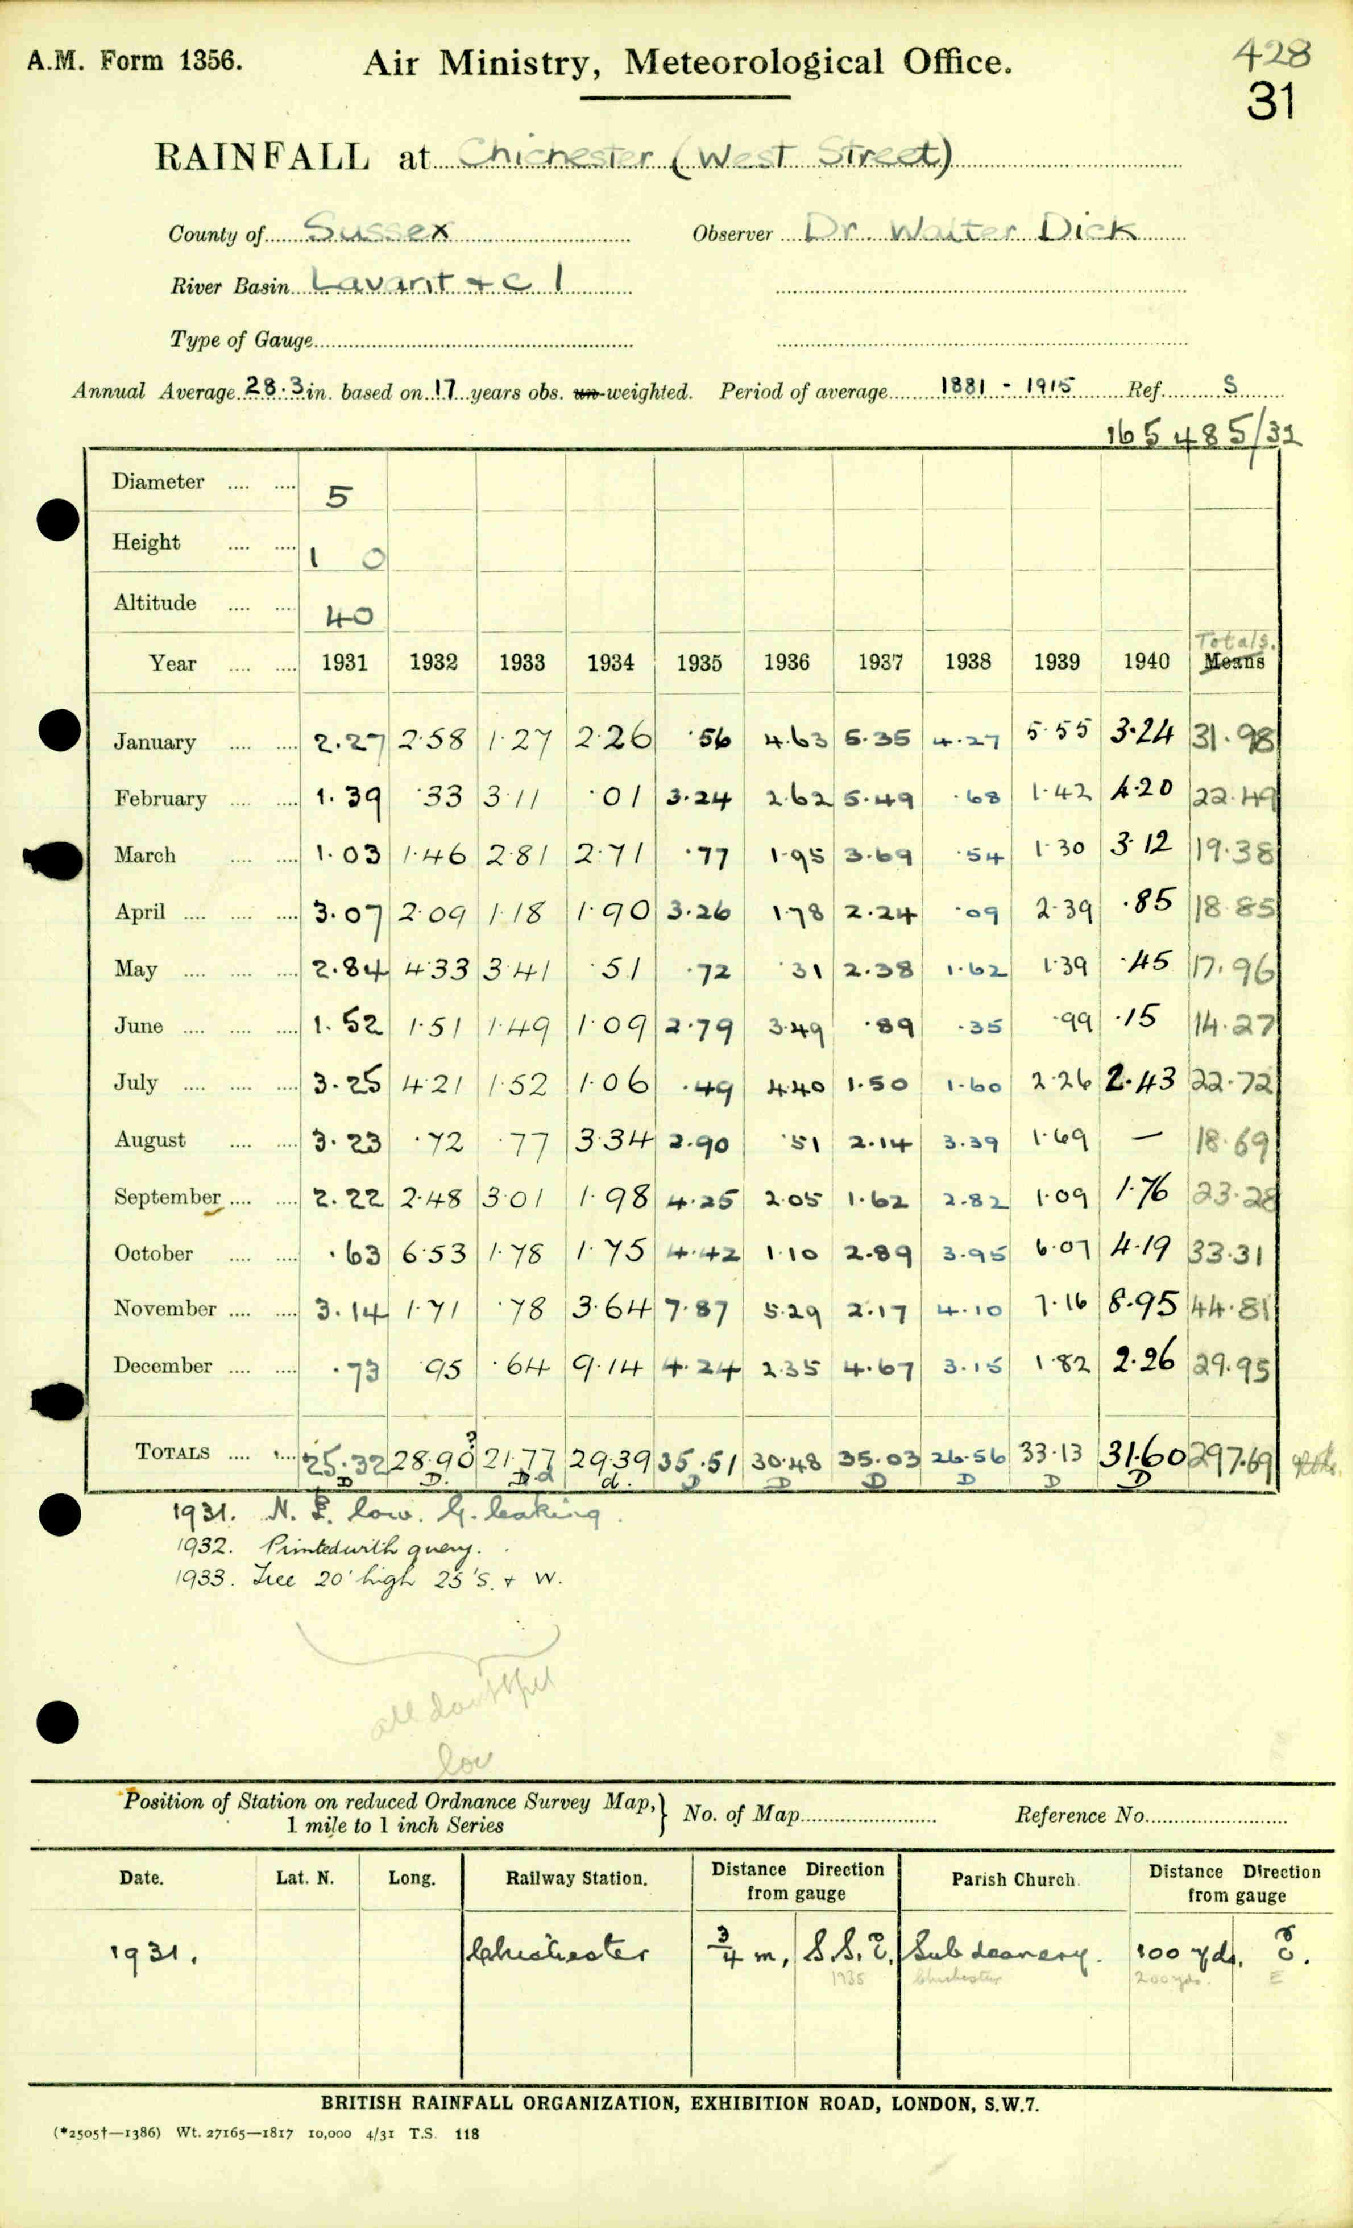 A.M. Form 1356. Air Ministry, Meteorological Office. 428
31
RAINFALL at Chichester (West Street)
County of Sussex Observer Dr. Walter Dick
River Basin Lavant + c 1
Type of Gauge
Annual Average 28.3 in. based on 17 years obs. un-weighted. Period of average 1881 - 1915 Ref. S
165485/31
Diameter 5
Height 1 0
Altitude 40
Totals.
Year 1931 1932 1933 1934 1935 1936 1937 1938 1939 1940 Means
January 2.27 2.58 1.27 2.26 .56 4.63 5.35 4.27 5.55 3.24 31.98
February 1.39 .33 3.11 .01 3.24 2.62 5.49 .68 1.42 4.20 22.49
March 1.03 1.46 2.81 2.71 .77 1.95 3.69 .54 1.30 3.12 19.38
April 3.07 2.09 1.18 1.90 3.26 1.78 2.24 .09 2.39 .85 18.85
May 2.84 4.33 3.41 .51 .72 .31 2.38 1.62 1.39 .45 17.96
June 1.52 1.51 1.49 1.09 2.79 3.49 .89 .35 .99 .15 14.27
July 3.25 4.21 1.52 1.06 .49 4.40 1.50 1.60 2.26 2.43 22.72
August 3.23 .72 .77 3.34 2.90 .51 2.14 3.39 1.69 — 18.69
September 2.22 2.48 3.01 1.98 4.25 2.05 1.62 2.82 1.09 1.76 23.28
October .63 6.53 1.78 1.75 4.42 1.10 2.89 3.95 6.07 4.19 33.31
November 3.14 1.71 .78 3.64 7.87 5.29 2.17 4.10 7.16 8.95 44.81
December .73 .95 .64 9.14 4.24 2.35 4.67 3.15 1.82 2.26 29.95
TOTALS 25.32 28.90? 21.77 29.39 35.51 30.48 35.03 26.56 33.13 31.60 297.69
D D. D d d. D D D D D D
1931. N. E. low. G. leaking.
1932. Printed with query.
1933. Tree 20' high 25' S. + W.
all doubtful
low
Position of Station on reduced Ordnance Survey Map,} No. of Map Reference No.
1 mile to 1 inch Series
Date. Lat. N. Long. Railway Station. Distance Direction from gauge Parish Church. Distance Direction from gauge
1931. Chichester 3/4 m, S.S.E. Sub deanery. 100 yds. E.
1935 Chichester 200 yds. E
BRITISH RAINFALL ORGANIZATION, EXHIBITION ROAD, LONDON, S.W.7.
(*2505†—1386) Wt. 27165—1817 10,000 4/31 T.S. 118